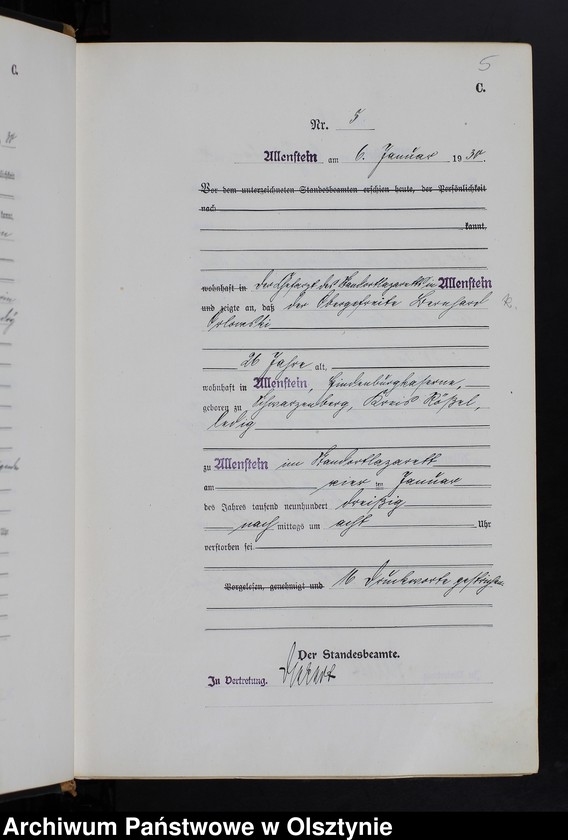 C.
5
C.
Nr. 5
Allenstein am 6. Januar 1930.
Vor dem unterzeichneten Standesbeamten erschien heute, der Persönlichkeit
nach
kannt,
wohnhaft in der Chefarzt des Standortlazaretts in Allenstein
und zeigte an, daß der Obergefreite Bernhard
Orlowski
26 Jahre alt,
wohnhaft in Allenstein, Hindenburgkaserne,
geboren zu Schwarzenberg, Kreis Rößel,
ledig
zu Allenstein im Standortlazarett
am vier ten Januar
des Jahres tausend neunhundert dreißig
nach mittags um acht Uhr
verstorben sei
Vorgelesen, genehmigt und 16 Druckworte gestrichen.
Der Standesbeamte.
In Vertretung.
Archiwum Państwowe w Olsztynie